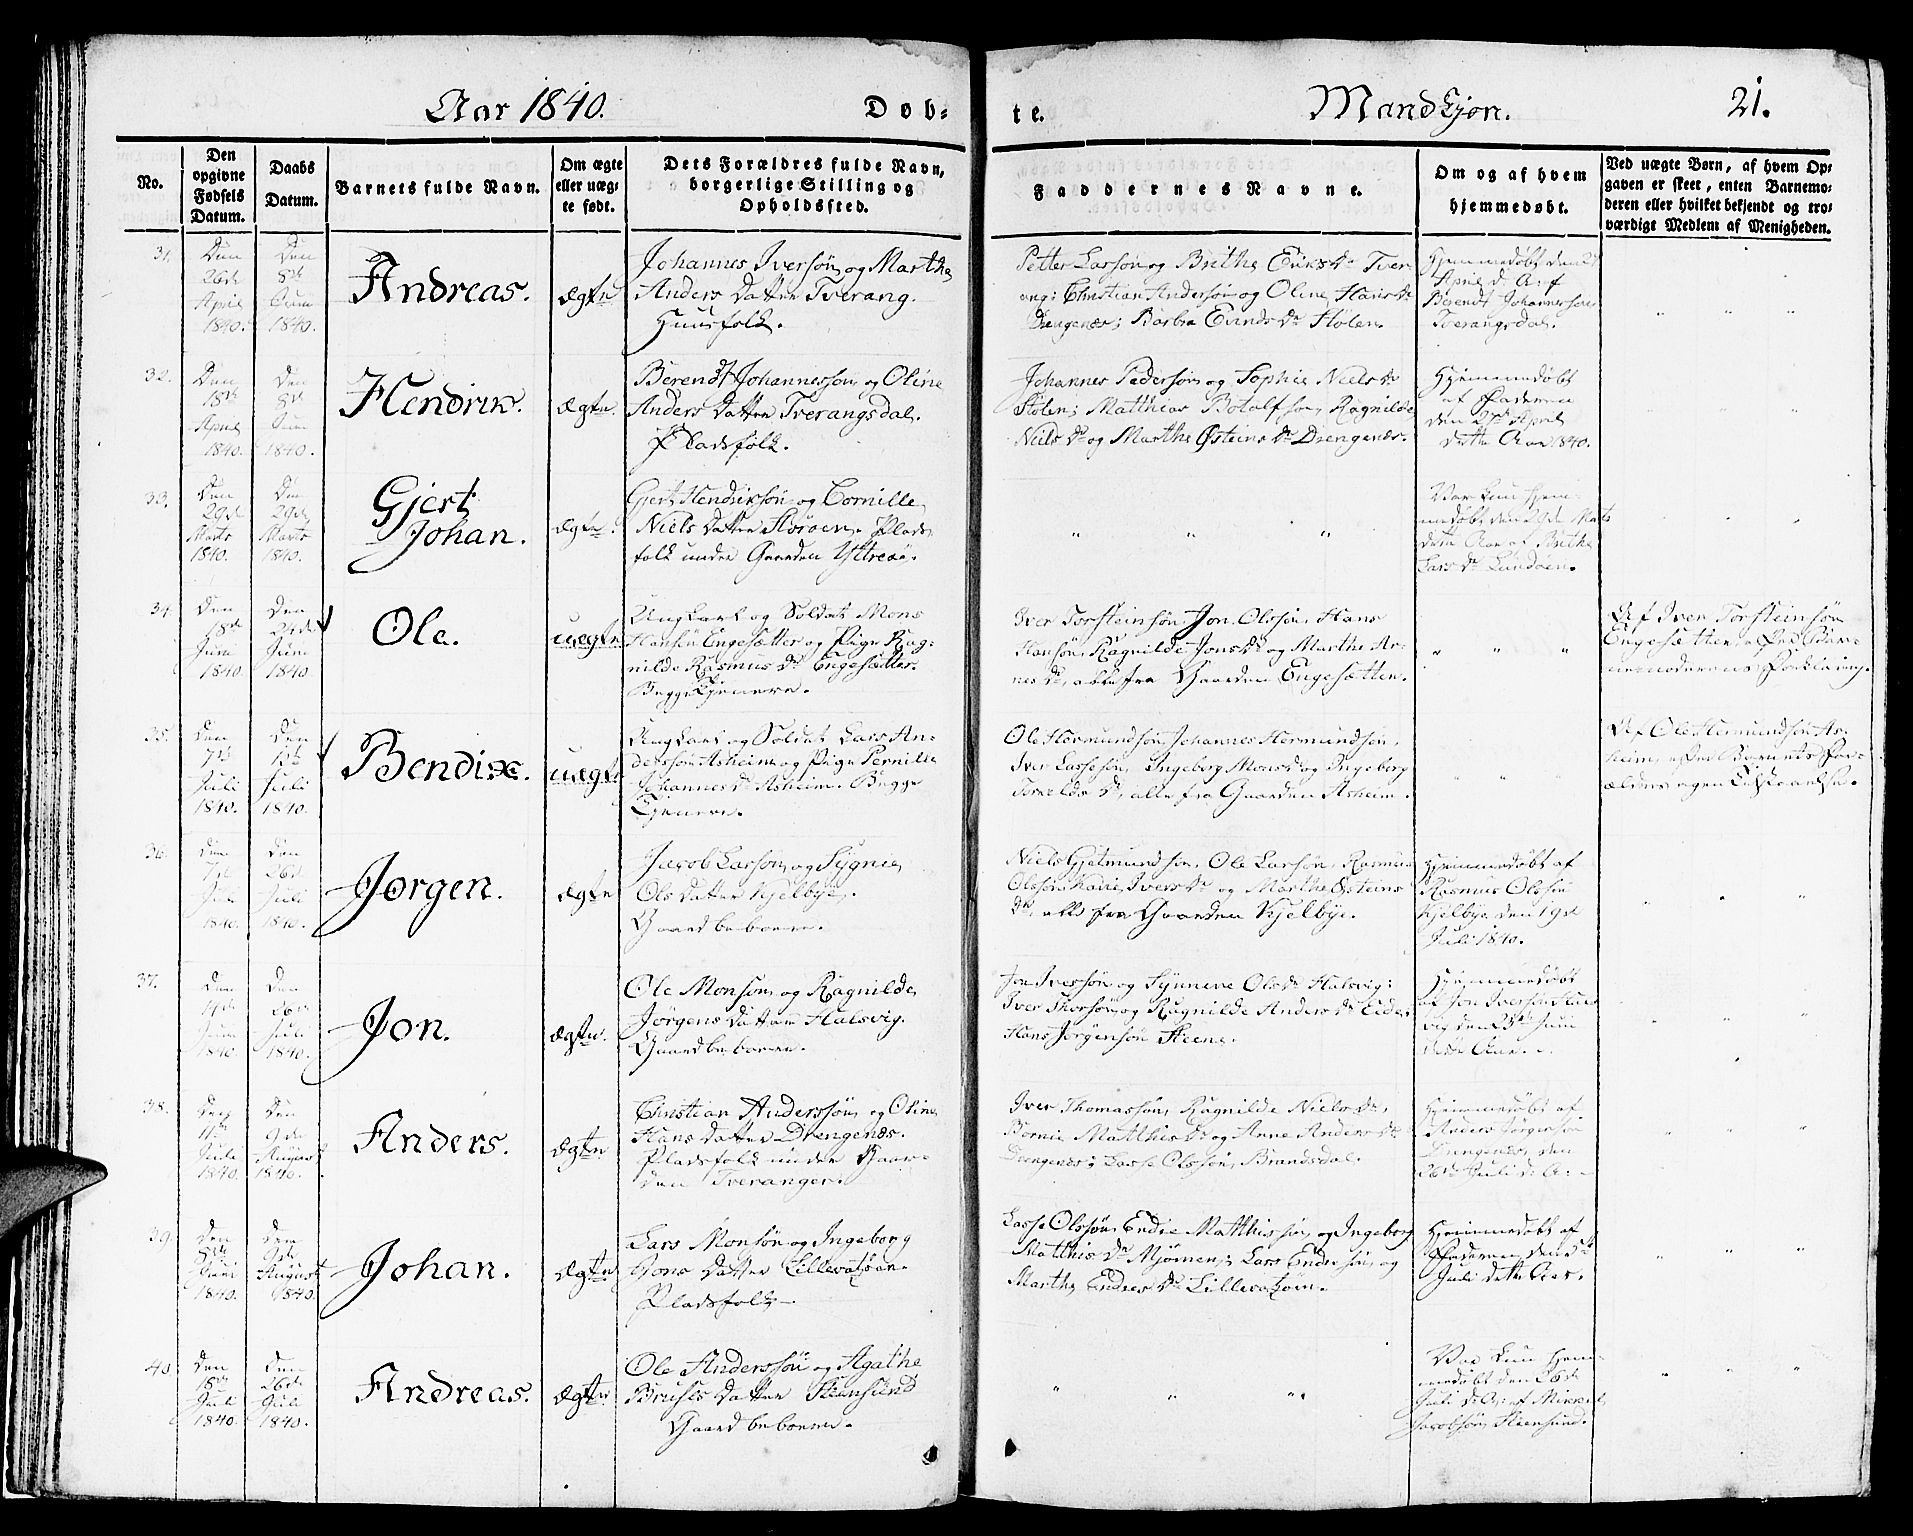 Aar 1840.
Døb=
te.
Mandkjøn.
21.
No.
Den
opgivne
Fødsels
Datum.
Daabs
Datum.
Barnets fulde Navn.
Om ægte
eller uæg-
te født.
Dets Forældres fulde Navn,
borgerlige Stilling og
Opholdssted.
Faddernes Navne.
Om og af hvem
hjemmedøbt.
Ved uægte Børn, af hvem Op-
gaven er skeet, enten Barnemo-
deren eller hvilket bekjendt og tro-
værdigt Medlem af Menigheden.
31.
Den
26de
April
1840.
Den
8de
Juni
1840.
Andreas.
Ægte
Johannes Iversøn og Marthe
Anders Datter Tverang.
Huusfolk.
Petter Larsøn og Brithe Eriks Dr Tver
ang; Christian Andersøn og Oline Hans Dr
Drengenæs; Barbra Evinds Dr Stølen.
Hjemmedøbt den
April d. A. af
Berendt Johannessøn
Tverangsdal.
32.
Den
18de
April
1840.
Den
8de
Juni
1840.
Hendrik.
Ægte
Berendt Johannessøn og Oline
Anders Datter Tverangsdal.
Pladsfolk.
Johannes Pedersøn og Sophie Niels Dr
Stølen; Matthias Botolfsøn, Ragnilde
Niels Dr og Marthe Østeins Dr Drengenæs.
Hjemmedøbt
af Faderen
den 27de April
dette Aar 1840.
33.
Den
29de
Marts
1840.
Den
29de
Marts
1840.
Gjert
Johan.
Ægte
Gjert Hendriksøn og Cornille
Niels Datter Storøen. Plads
folk under Gaarden Yttreøe.
Var kun hjem-
medøbt den 29de Marts
dette Aar af Brithe
Lars Dr Lundøen.
34.
Den
18de
Juni
1840.
Den
24de
Juni
1840.
Ole.
uægte
Ungkarl og Soldat Mons
Hansøn Engesætter og Pige Rag-
nilde Rasmus Dr Engesætter.
Begge Tjenere.
Iver Torsteinsøn, Jon Olssøn, Hans
Hansøn, Ragnilde Jons Dr og Marthe Ar-
nes Dr, alle fra Gaarden Engesætter.
Af Iver Torsteinsøn
Engesætter, efter Bar-
nemoderens Forklaring.
35.
Den
7de
Juli
1840.
Den
13de
Juli
1840.
Bendix.
uægte
Ungkarl og Soldat Lars An-
derssøn Asheim og Pige Pernille
Johannes Dr Asheim. Begge
Tjenere.
Ole Hermundsøn, Johannes Hermundsøn,
Iver Lassesøn, Ingeborg Mons Dr og Ingeborg
Torkelds Dr, alle fra Gaarden Asheim.
Af Ole Hermundsøn As-
heim, efter Barnets For-
ældres egen Tilstaaelse.
36.
Den
7de
Juli
1840.
Den
26de
Juli
1840.
Jørgen.
Ægte
Jacob Larsøn og Sygni
Ols Datter Kjelbye.
Gaardbeboere.
Niels Gjetmundsøn, Ole Larsøn, Rasmus
Olssøn, Kari Ivers Dr og Marthe Østeins
Dr, alle fra Gaarden Kjelbye.
Hjemmedøbt af
Rasmus Olssøn
Kjelbye den 19de
Juli 1840.
37.
Den
4de
Juni
1840
Den
26de
Juli
1840.
Jon.
Ægte.
Ole Monsøn og Ragnilde
Jørgens Datter Halsvig.
Gaardbeboere.
Jon Iversøn og Synneve Ols Dr Halsvig;
Iver Thorsøn og Ragnilde Anders Dr Eide;
Hans Jørgensøn Steene.
Hjemmedøbt
af Jon Iversøn Hals
vig den 23de Juni
dette Aar.
38.
Den
11te
Juli
1840
Den
9de
August
1840.
Anders.
Ægte
Christian Anderssøn og Oline
Hans Datter Drengenæs.
Pladsfolk under Gaar-
den Tveranger.
Iver Thomassøn, Ragnilde Niels Dr,
Bornie Matthis Dr og Anne Anders Dr
Drengenæs; Lasse Olssøn Brandsdal.
Hjemmedøbt af
Anders Jørgensøn
Drengenæs, den
26de Juli d. A.
39.
Den
Juni
1840.
Den
9de
August
1840.
Johan.
Ægte
Lars Monsøn og Ingeborg
Jons Datter Lillevatsøen.
Pladsfolk
Lasse Olssøn, Endre Matthissøn og Ingeborg
Matthis Dr Mjømen; Lars Endersøn, og
Marthe Endres Dr Lillevatsøen.
Hjemmedøbt af
Faderen den 5te
Juli dette Aar.
40.
Den
18de
Juli
1840.
Den
26de
Juli
1840.
Andreas.
Ægte
Ole Anderssøn og Agathe
Bruses Datter Steensund
Gaardbeboere.
Var kun hjem-
medøbt den 26de
Juli d. A. af Mikkel
Jacobsøn Steensund.